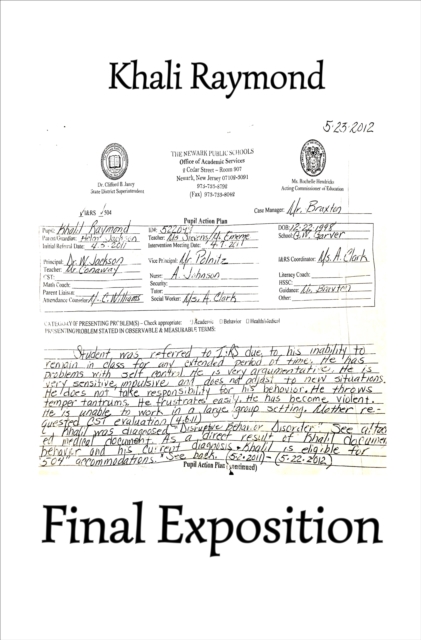 Khali Raymond
5-23-2012
THE NEWARK PUBLIC SCHOOLS
Office of Academic Services
2 Cedar Street – Room 907
Newark, New Jersey 07102-3091
973-733-8700
(Fax) 973-733-8682
Dr. Clifford B. Janey
State District Superintendent
Ms. Rochelle Hendricks
Acting Commissioner of Education
I&RS 504
Case Manager: Mr. Braxton
Pupil Action Plan
Pupil: Khalil Raymond
ID#:
DOB: 12-22-1998
Parent/Guardian:
Teacher: Ms Stevens/
School: G.W. Carver
Initial Referral Date: 4-5-2011
Intervention Meeting Date: 4-7-2011
Principal: Dr. W. Jackson
Vice Principal: Mr. Polnitz
I&RS Coordinator: Ms. A. Clark
Teacher: Mr. Conaway
Nurse: A. Johnson
Literacy Coach:
CST:
Security:
HSSC:
Math Coach:
Tutor:
Guidance: Mr. Braxton
Parent Liaison:
Social Worker: Ms. A. Clark
Other:
Attendance Counselor: C. Williams
CATEGORY OF PRESENTING PROBLEM(S) – Check appropriate: Academic Behavior Health/Medical
PRESENTING PROBLEM STATED IN OBSERVABLE & MEASURABLE TERMS:
Student was referred to I&RS due to his inability to
remain in class for any extended period of time. He has
problems with self control. He is very argumentative. He is
very sensitive, impulsive and does not adjust to new situations.
He does not take responsibility for his behavior. He throws
temper tantrums. He frustrates easily. He has become violent.
He is unable to work in a large group setting. Mother re-
quested CST evaluation (4-6-11)
Khalil was diagnosed "Disruptive Behavior Disorder." See attach
ed medical document. As a direct result of Khalil documen
behavior and his current diagnosis, Khalil is eligible for
504 accommodations. *See back. (5-2-2011) - (5-22-2012)
Pupil Action Plan (continued)
Final Exposition